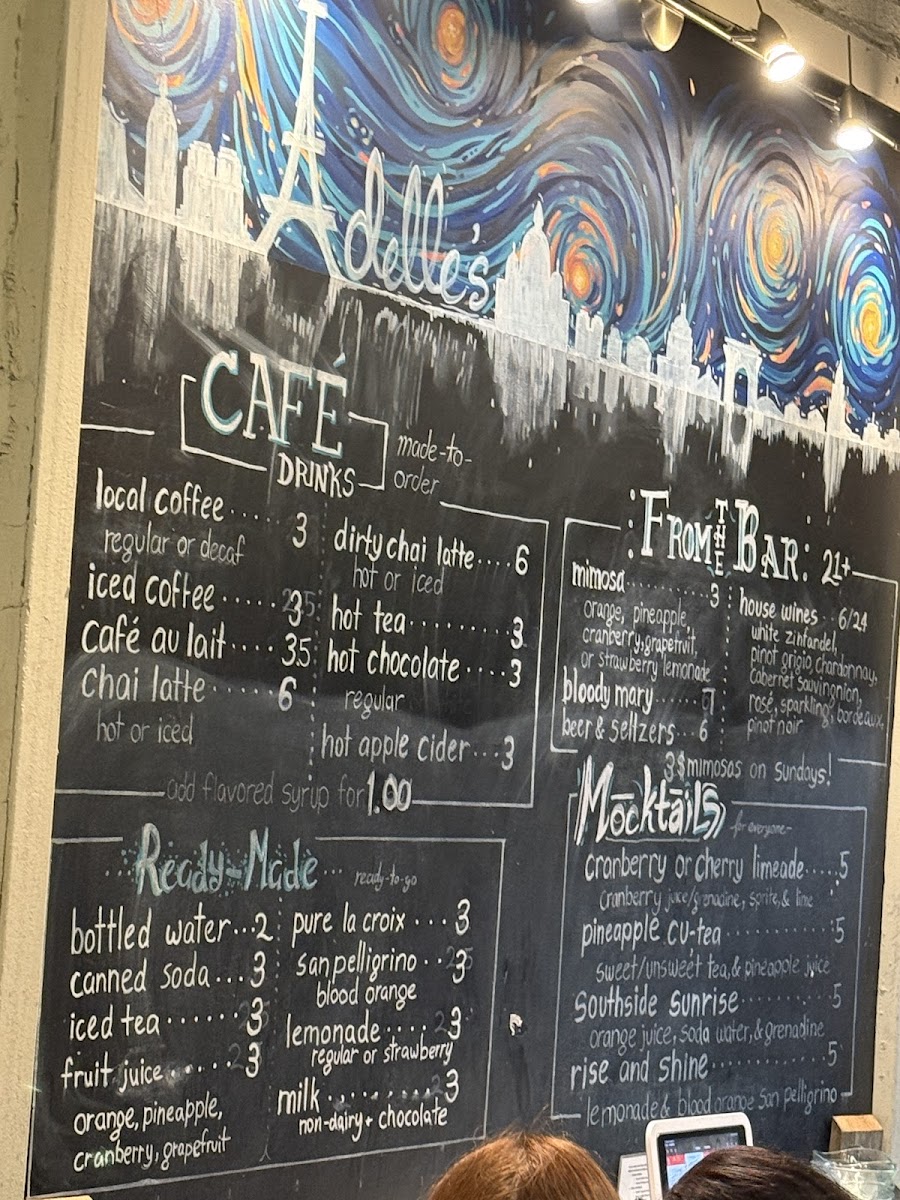 Adelle's
CAFÉ
DRINKS
made-to-
order
local coffee ..... 3
regular or decaf
iced coffee ...... 3
café au lait ..... 35
chai latte ...... 6
hot or iced
dirty chai latte .... 6
hot or iced
hot tea ......... 3
hot chocolate .... 3
regular
hot apple cider ... 3
add flavored syrup for 1.00
Ready-Made
ready-to-go
bottled water ... 2
canned soda ... 3
iced tea ...... 3
fruit juice ...... 3
orange, pineapple,
cranberry, grapefruit
pure la croix ... 3
san pelligrino .. 3
blood orange
lemonade .... 3
regular or strawberry
milk ......... 3
non-dairy + chocolate
FROM THE BAR: 21+
mimosa ......... 3
orange, pineapple,
cranberry, grapefruit,
or strawberry lemonade
bloody mary ...... 7
beer & seltzers ... 6
house wines .. 6/24
white zinfandel,
pinot grigio, chardonnay,
cabernet sauvingnon,
rosé, sparkling, bordeaux,
pinot noir
3$ mimosas on sundays!
Mocktails
for everyone-
cranberry or cherry limeade .... 5
cranberry juice/grenadine, sprite, & lime
pineapple cu-tea .......... 5
sweet/unsweet tea, & pineapple juice
Southside Sunrise ........ 5
orange juice, soda water, & grenadine
rise and shine ............ 5
lemonade & blood orange San pelligrino